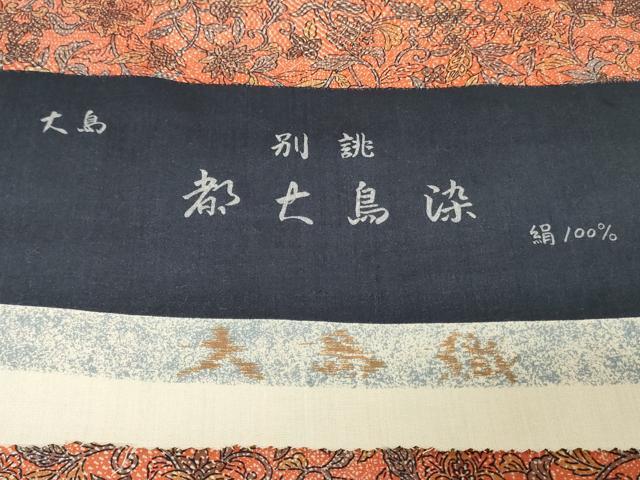 大島
別誂
都大島染
絹100%
大島織